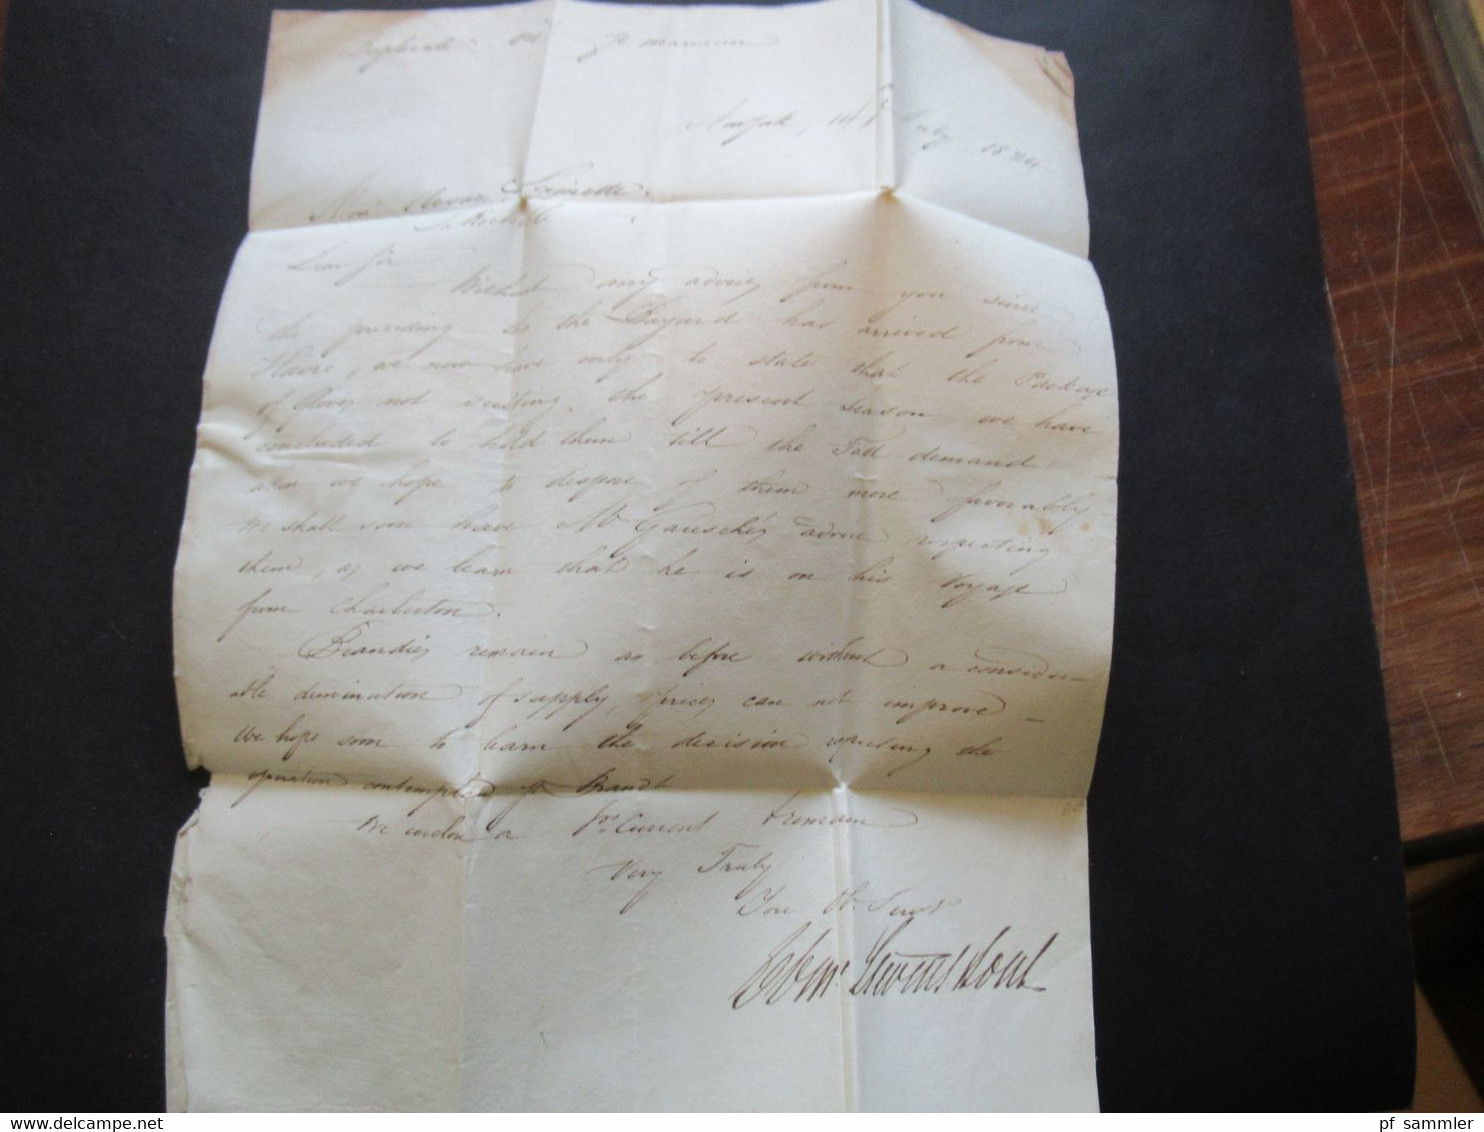 Duplicate
New York, 14th July 1824
Monr
La Rochelle
Dear Sir
Without any advices from you since
the preceding by the Bayard has arrived from
Havre, we now have only to state that the Package
of Gloves not suiting the present season we have
concluded to hold them till the Fall demand
when we hope to dispose of them more favorably
We shall soon have Mr advice respecting
them, as we learn that he is on his voyage
from Charleston.
Brandies remain as before without a consider-
able diminution of supply, prices can not improve -
We hope soon to learn the decision respecting the
operation contemplated Brandt
We enclose a Prs Current & remain
Very Truly
Your Ob. Servts
Ebenr Stevens Sons
delcampe.net
pf_sammler